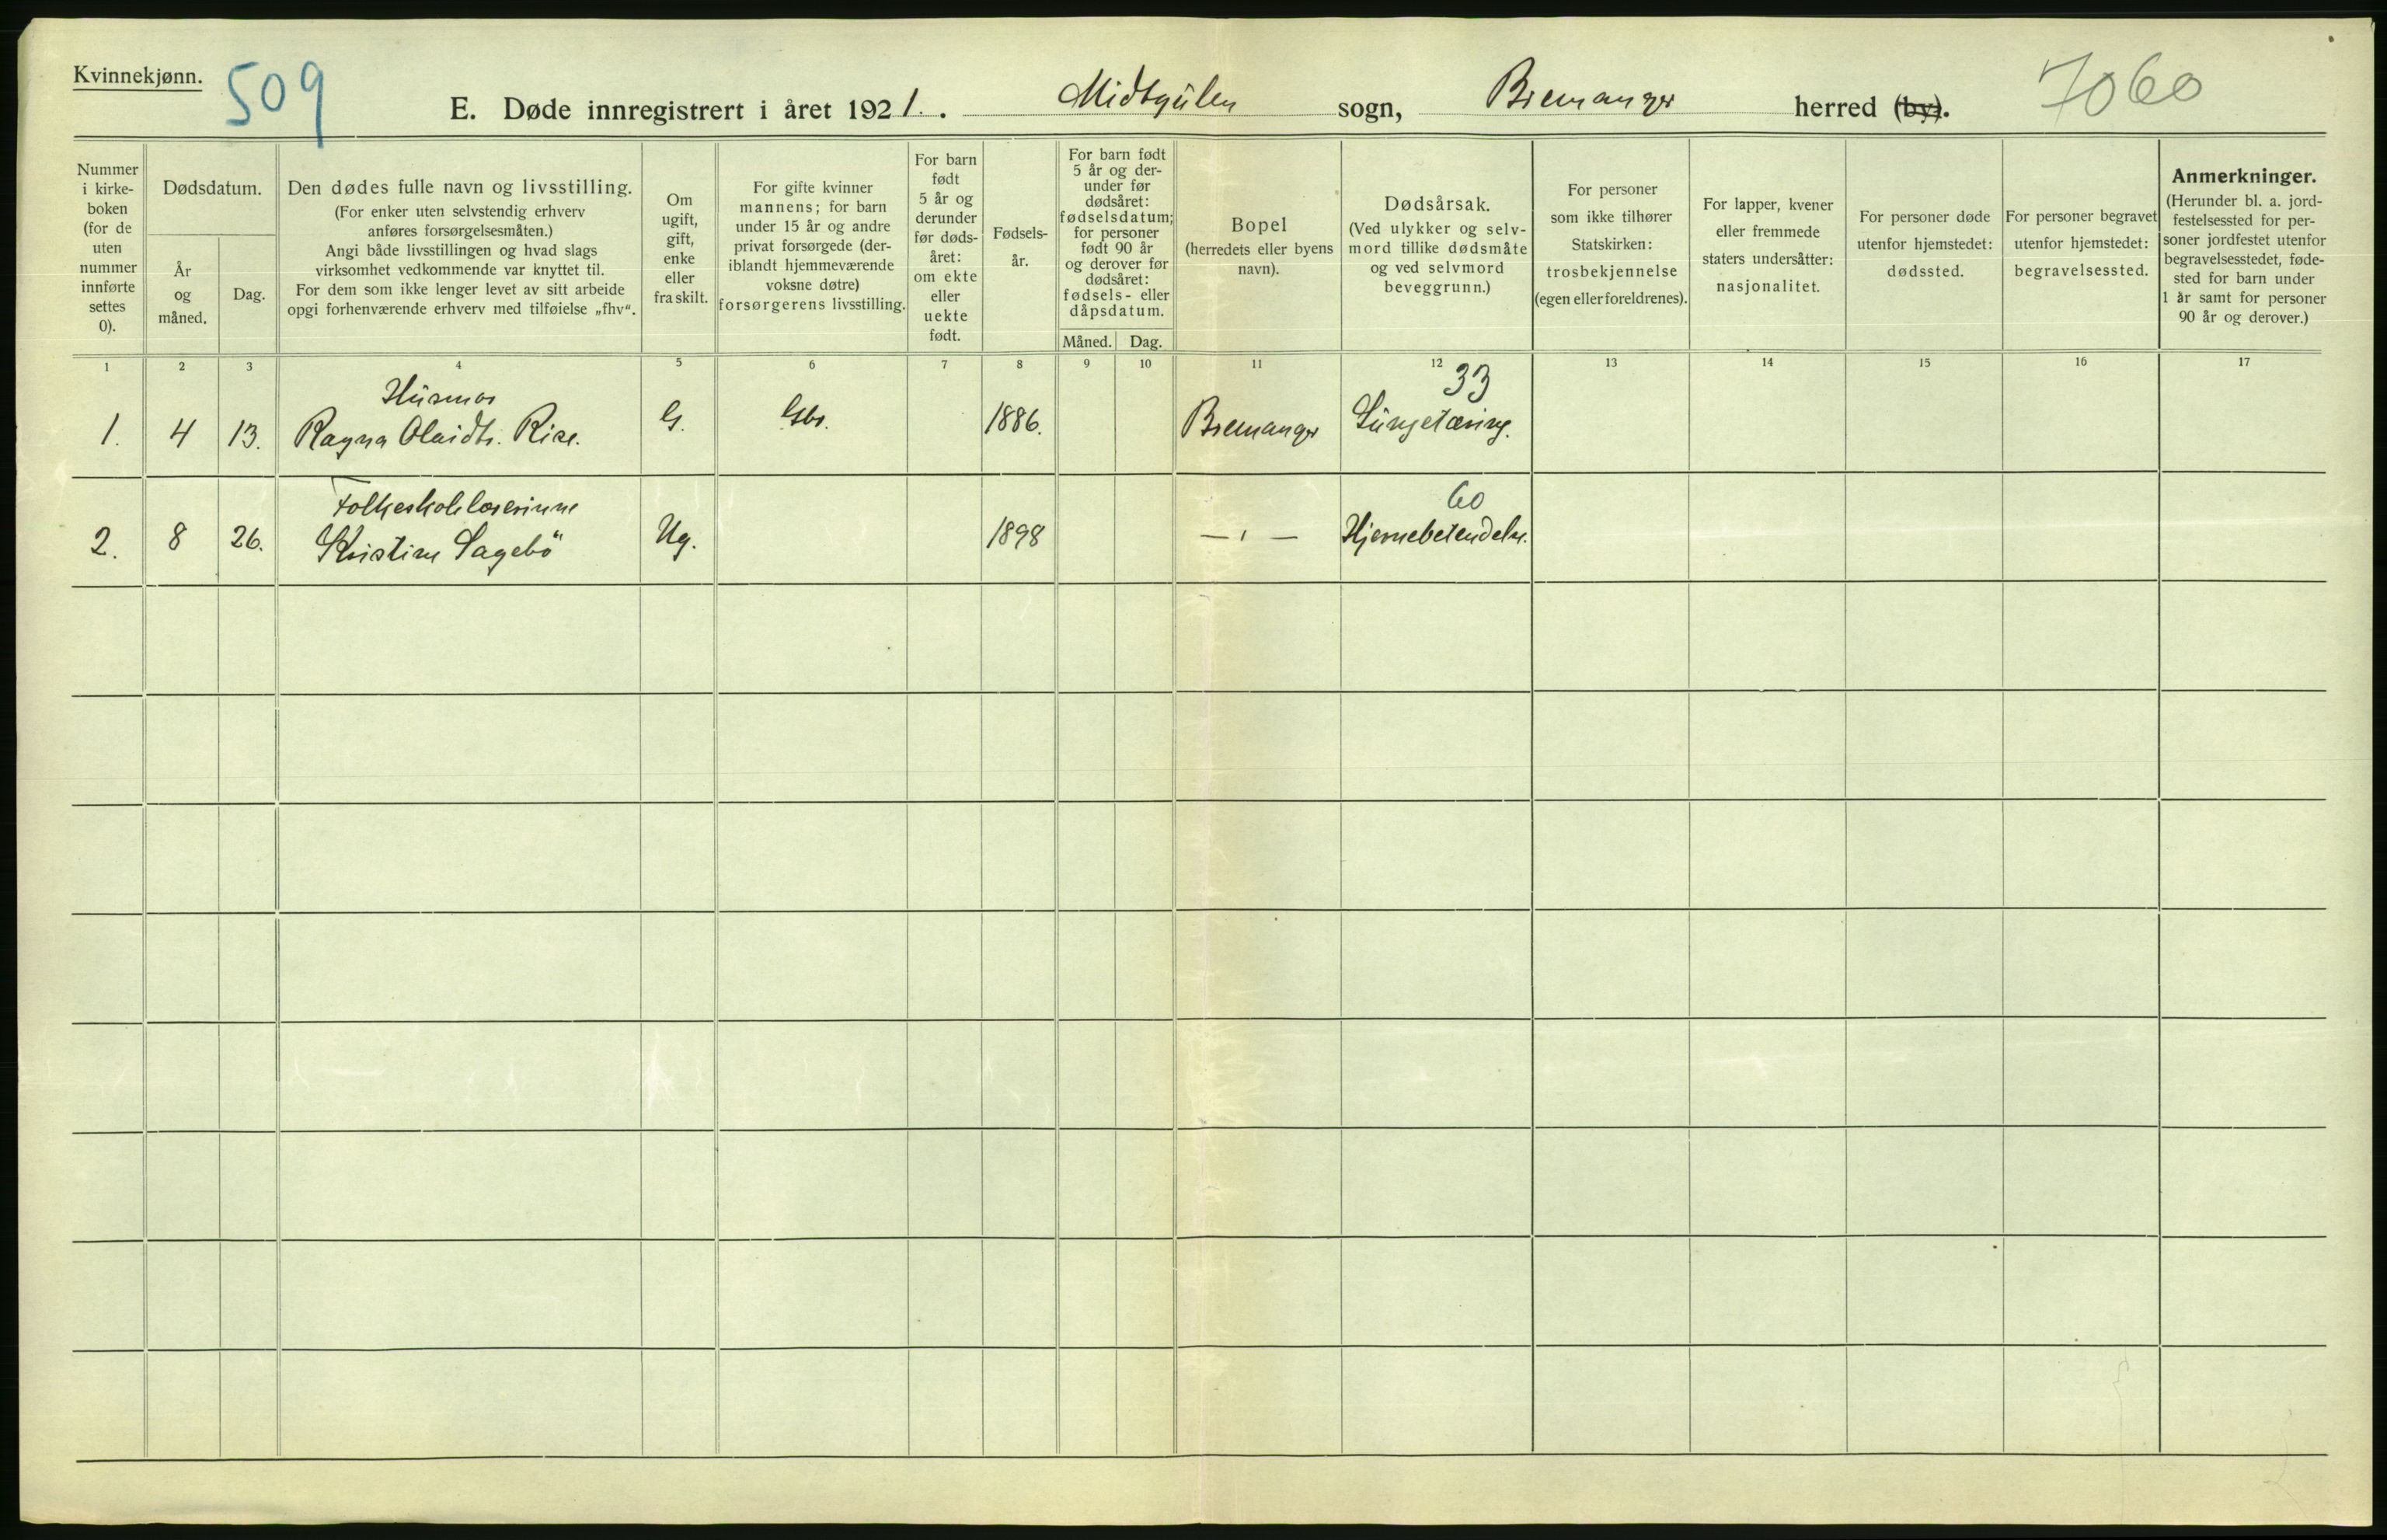 Kvinnekjønn.
509
E. Døde innregistrert i året 1921. Midtgulen sogn, Bremanger herred (by).
7060
Nummer
i kirke-
boken
(for de
uten
nummer
innførte
settes
0).
Dødsdatum.
År
og
måned.
Dag.
Den dødes fulle navn og livsstilling.
(For enker uten selvstendig erhverv
anføres forsørgelsesmåten.)
Angi både livsstillingen og hvad slags
virksomhet vedkommende var knyttet til.
For dem som ikke lenger levet av sitt arbeide
opgi forhenværende erhverv med tilføielse „fhv“.
Om
ugift,
gift,
enke
eller
fraskilt.
For gifte kvinner
mannens; for barn
under 15 år og andre
privat forsørgede (der-
iblandt hjemmeværende
voksne døtre)
forsørgerens livsstilling.
For barn
født
5 år og
derunder
før døds-
året:
om ekte
eller
uekte
født.
Fødsels-
år.
For barn født
5 år og der-
under før
dødsåret:
fødselsdatum;
for personer
født 90 år
og derover før
dødsåret:
fødsels- eller
dåpsdatum.
Måned.
Dag.
Bopel
(herredets eller byens
navn).
Dødsårsak.
(Ved ulykker og selv-
mord tillike dødsmåte
og ved selvmord
beveggrunn.)
For personer
som ikke tilhører
Statskirken:
trosbekjennelse
(egen eller foreldrenes).
For lapper, kvener
eller fremmede
staters undersåtter:
nasjonalitet.
For personer døde
utenfor hjemstedet:
dødssted.
For personer begravet
utenfor hjemstedet:
begravelsessted.
Anmerkninger.
(Herunder bl. a. jord-
festelsessted for per-
soner jordfestet utenfor
begravelsesstedet, føde-
sted for barn under
1 år samt for personer
90 år og derover.)
1 2 3 4 5 6 7 8 9 10 11 12 13 14 15 16 17
Husmor 33
1. 4 13. Ragna Olaidtr. Rise. G. Gbr. 1886. Bremanger Lungetæring.
Folkeskolelærerinne 60
2. 8 26. Kristine Sagebö Ug. 1898 — ' — Hjernebetendelse.